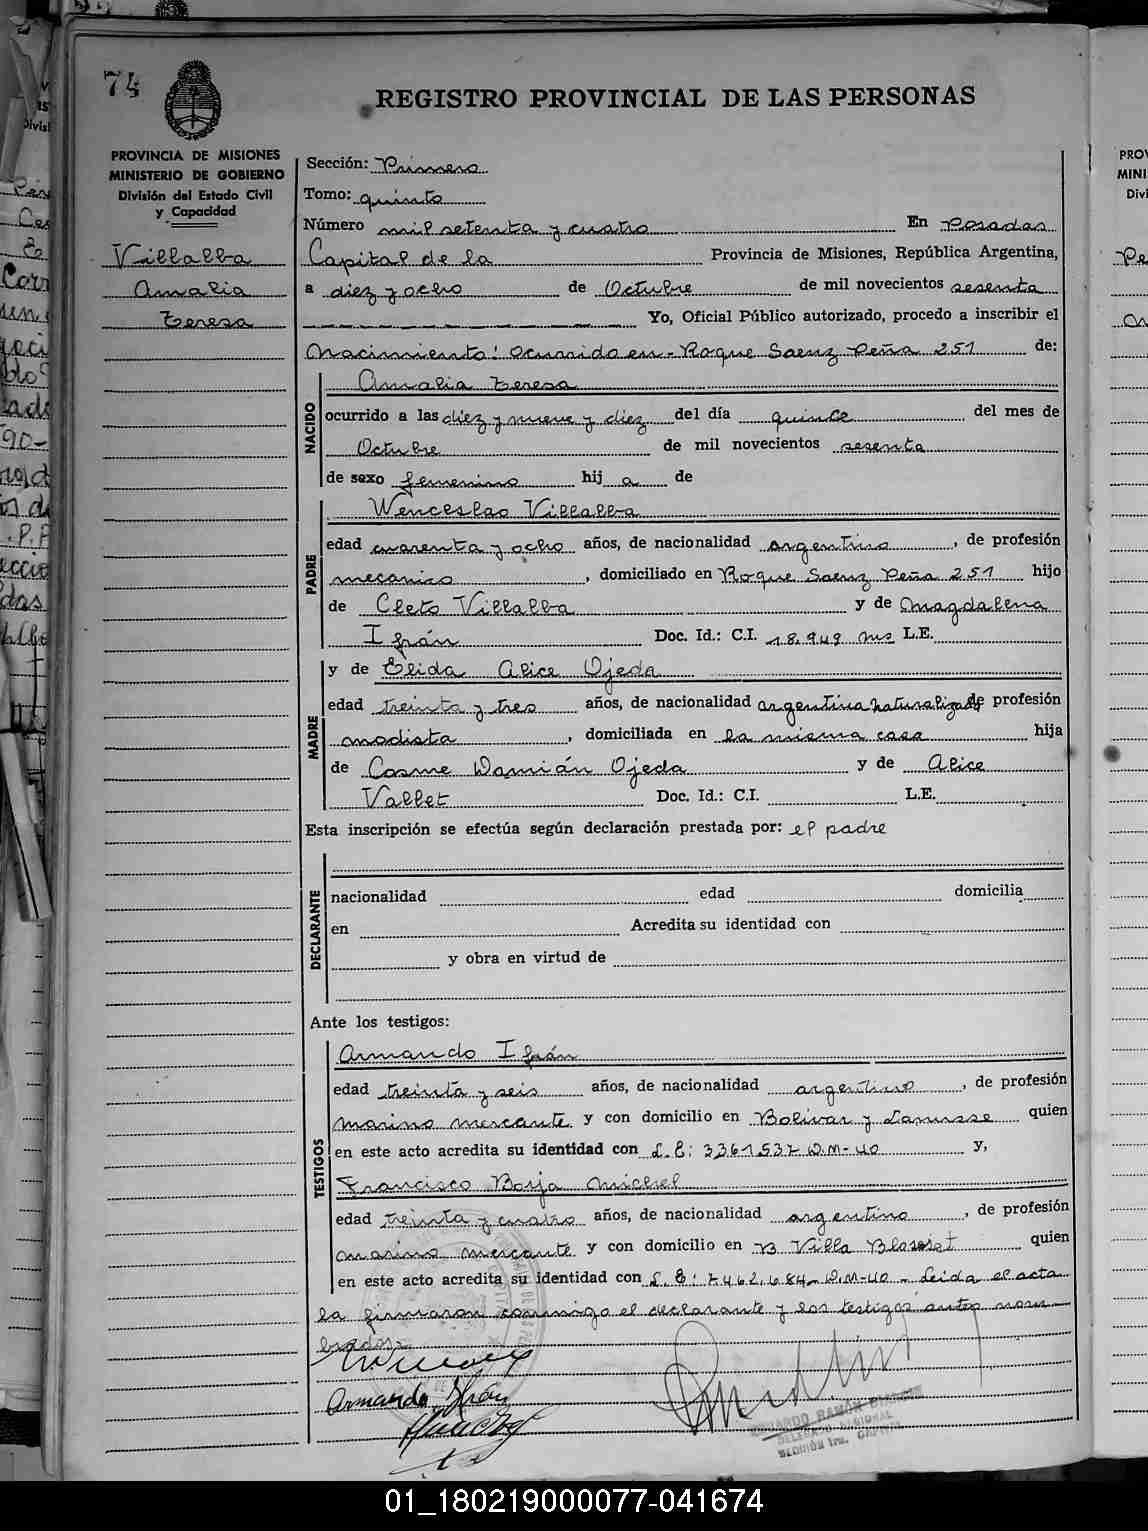 74
REGISTRO PROVINCIAL DE LAS PERSONAS
PROVINCIA DE MISIONES
MINISTERIO DE GOBIERNO
División del Estado Civil
y Capacidad
Villalba
Amalia
Teresa
Sección: Primera
Tomo: quinto
Número mil setenta y cuatro En Posadas
Capital de la Provincia de Misiones, República Argentina,
a diez y ocho de Octubre de mil novecientos sesenta
Yo, Oficial Público autorizado, procedo a inscribir el
Nacimiento: ocurrido en - Roque Saenz Peña 251 de:
NACIDO
Amalia Teresa
ocurrido a las diez y nueve y diez del día quince del mes de
Octubre de mil novecientos sesenta
de sexo femenino hij a de
PADRE
Wenceslao Villalba
edad cuarenta y ocho años, de nacionalidad argentino, de profesión
mecanico, domiciliado en Roque Saenz Peña 251 hijo
de Cleto Villalba y de Magdalena
Ifrán Doc. Id.: C.I. 18.949 Ms L.E.
MADRE
y de Elida Alice Ojeda
edad treinta y tres años, de nacionalidad argentina naturalizada de profesión
modista, domiciliada en la misma casa hija
de Cosme Damián Ojeda y de Alice
Vallet Doc. Id.: C.I. L.E.
Esta inscripción se efectúa según declaración prestada por: el padre
DECLARANTE
nacionalidad edad domicilia
en Acredita su identidad con
y obra en virtud de
Ante los testigos:
TESTIGOS
Armando Ifrán
edad treinta y seis años, de nacionalidad argentino, de profesión
marino mercante y con domicilio en Bolivar y Lanusse quien
en este acto acredita su identidad con L.E: 3361.537 D.M-40 y,
Francisco Borja Michel
edad treinta y cuatro años, de nacionalidad argentino, de profesión
marino mercante y con domicilio en B Villa Blosset quien
en este acto acredita su identidad con L.E: 7.462.684 - D.M-40 - Leida el acta
la firmaron conmigo el declarante y los testigos antes nom-
brados -
Armando Ifrán
EDUARDO RAMÓN
DELEGADO REGIONAL
SECCIÓN 1ra. CAPITAL
01_180219000077-041674